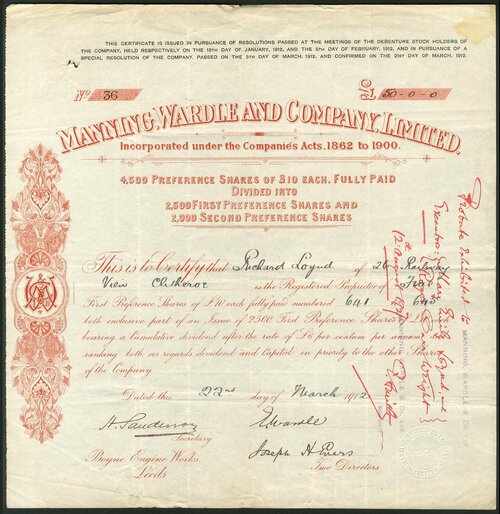 THIS CERTIFICATE IS ISSUED IN PURSUANCE OF RESOLUTIONS PASSED AT THE MEETINGS OF THE DEBENTURE STOCK HOLDERS
OF THE COMPANY, HELD RESPECTIVELY ON THE 12TH DAY OF JANUARY, 1912, AND THE 5TH DAY OF FEBRUARY, 1912, AND IN PURSUANCE OF A
SPECIAL RESOLUTION OF THE COMPANY, PASSED ON THE 5TH DAY OF MARCH, 1912, AND CONFIRMED ON THE 21ST DAY OF MARCH, 1912.
No 36
£50-0-0
MANNING, WARDLE AND COMPANY, LIMITED.
Incorporated under the Companies Acts, 1862 to 1900.
4,500 PREFERENCE SHARES OF £10 EACH, FULLY PAID
DIVIDED INTO
2,500 FIRST PREFERENCE SHARES AND
2,000 SECOND PREFERENCE SHARES
This is to Certify that Richard Loynd of 26 Railway
View Clitheroe is the Registered Proprietor of Five
First Preference Shares of £10 each fully paid numbered 641 645
both inclusive part of an Issue of 2500 First Preference Shares
bearing a Cumulative dividend after the rate of £6 per centum per annum
ranking both as regards dividend and Capital in priority to the other Shares
of the Company.
Dated this 22nd day of March 1912
H. Sanderson
Secretary
E Wardle
Joseph H. Evers
Two Directors
Boyne Engine Works,
Leeds
Probate Exhibited to
MANNING, WARDLE & Co
Executors
Loynd and
Wright